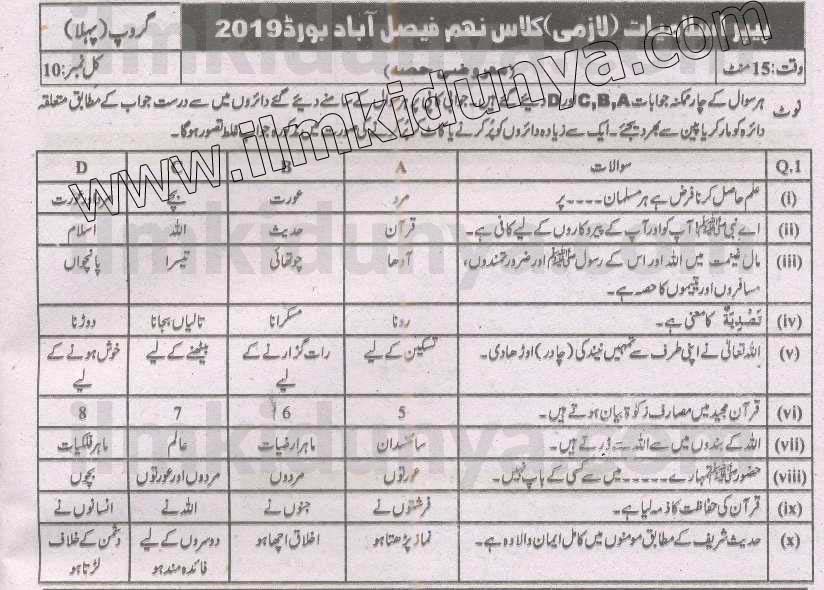 پیپر اسلامیات (لازمی) کلاس نہم فیصل آباد بورڈ 2019 گروپ (پہلا)
وقت: 15 منٹ (معروضی حصہ) کل نمبر: 10
نوٹ ہر سوال کے چار ممکنہ جوابات C,B,A اور D دیئے گئے ہیں۔ جوابی کاپی پر ہر سوال کے سامنے دیئے گئے دائروں میں سے درست جواب کے مطابق متعلقہ
دائرہ کو مارکر یا پین سے بھر دیجئے۔ ایک سے زیادہ دائروں کو پُر کرنے یا کاٹ کر پُر کرنے کی صورت میں مذکورہ جواب غلط تصور ہوگا۔
Q.1 سوالات A B D
(i) علم حاصل کرنا فرض ہے ہر مسلمان ۔۔۔۔ پر مرد عورت بچے مرد اور عورت
(ii) اے نبی ﷺ! آپ کو اور آپ کے پیروکاروں کے لیے کافی ہے۔ قرآن حدیث اللہ اسلام
(iii) مال غنیمت میں اللہ اور اس کے رسول ﷺ اور ضرورتمندوں، آدھا چوتھائی تیسرا پانچواں
مسافروں اور یتیموں کا حصہ ہے۔
(iv) تَصْدِيَةً کا معنی ہے۔ رونا مسکرانا تالیاں بجانا دوڑنا
(v) اللہ تعالیٰ نے اپنی طرف سے تمہیں نیند کی (چادر) اوڑھا دی۔ تسکین کے لیے رات گزارنے کے بیٹھنے کے لیے خوش ہونے کے
لیے لیے
(vi) قرآن مجید میں مصارف زکوٰۃ بیان ہوئے ہیں۔ 5 6 7 8
(vii) اللہ کے بندوں میں سے اللہ سے ڈرتے ہیں۔ سائنسدان ماہر ارضیات عالم ماہر فلکیات
(viii) حضور ﷺ تمہارے ۔۔۔۔۔ میں سے کسی کے باپ نہیں۔ عورتوں مردوں مردوں اور عورتوں بچوں
(ix) قرآن کی حفاظت کا ذمہ لیا ہے۔ فرشتوں نے جنوں نے اللہ نے انسانوں نے
(x) حدیث شریف کے مطابق مومنوں میں کامل ایمان والا وہ ہے۔ نماز پڑھتا ہو اخلاق اچھا ہو دوسروں کے لیے دشمن کے خلاف
فائدہ مند ہو لڑتا ہو
www.ilmkidunya.com